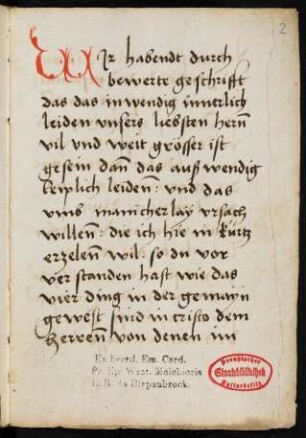 2
Wir habendt durch
bewerte geschrifft
das das inwendig innerlich
leiden unsers liebsten herñ
vil und weit grösser ist
gesein dañ das auß wendig
leiplich leiden: und das
umb manicherlay ursach
willen: die ich hie in kürtz
erzelenn wil: so du vor
verstanden hast wie das
vier ding in der gemayn
gewest sind in cristo dem
herren von denen im
Ex hered. Em. Card.
Pr. Epi Wrat. Melchioris
L. B. de Diepenbrock.
Preußischer
Staatsbibliothek
Kulturbesitz